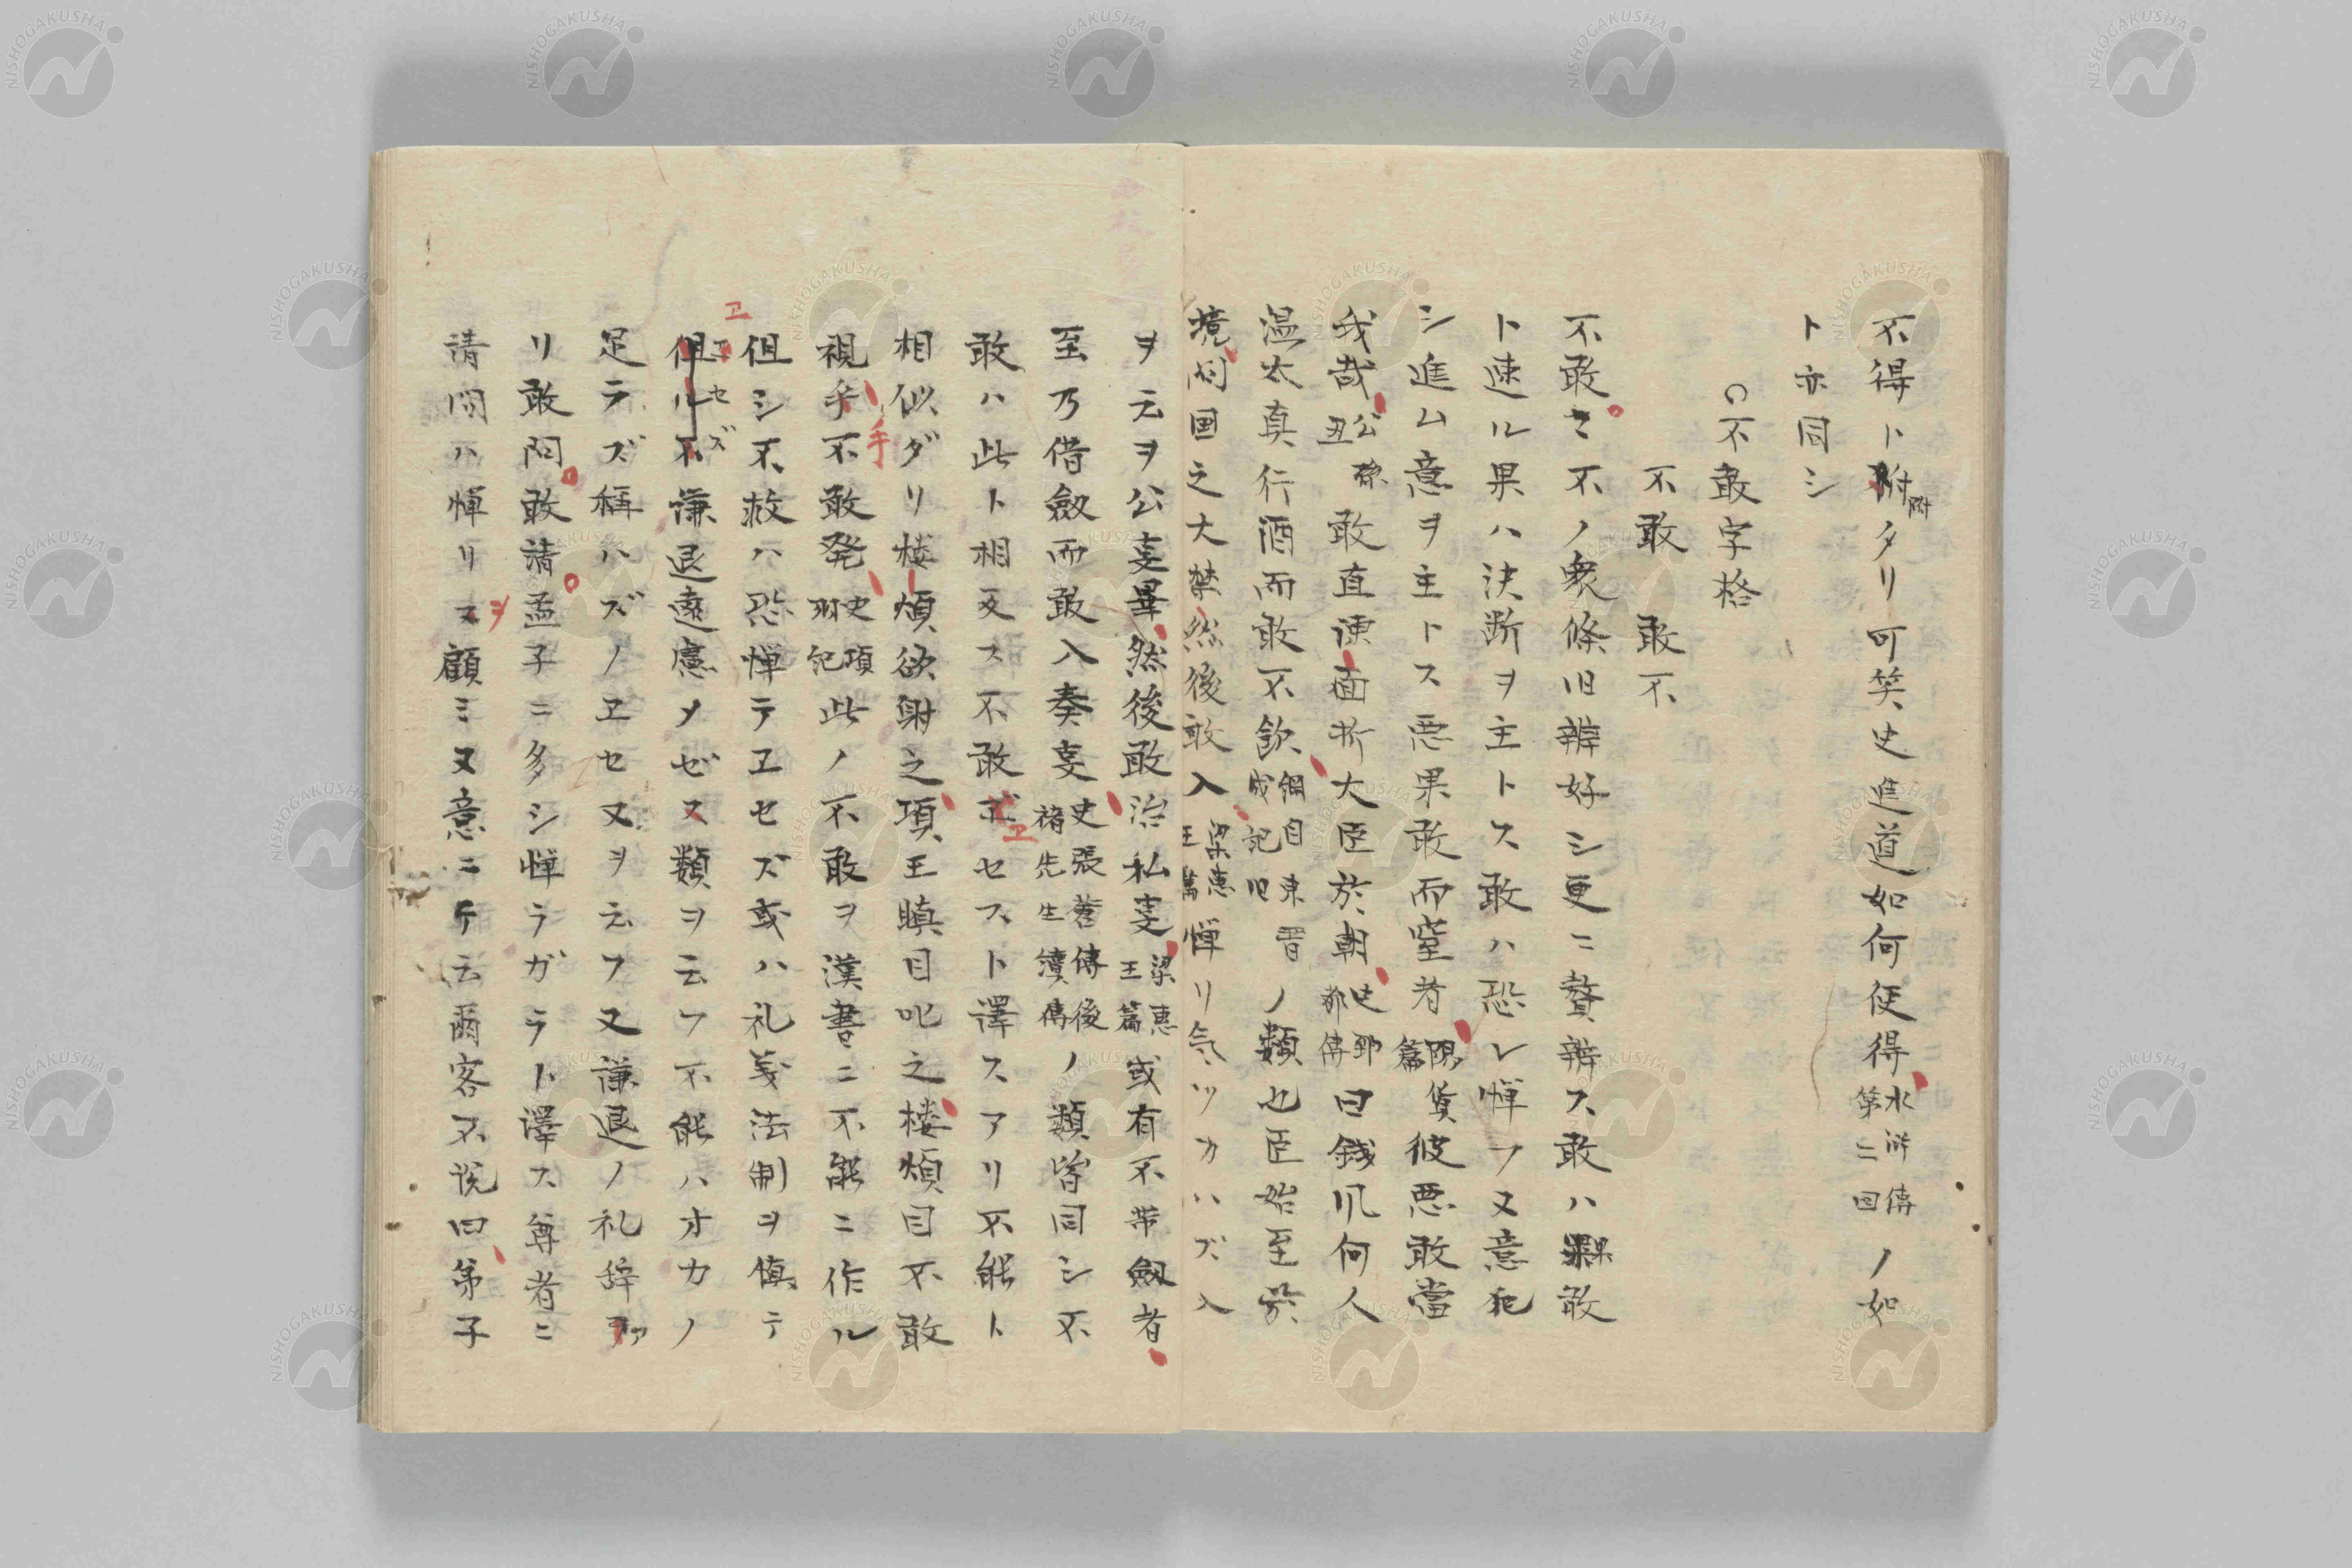 不得ト附タリ可笑史進道如何使得水滸傳第二回ノ如
ト亦同シ
○不敢字格
不敢　敢不
不敢さ不ノ衆條旧辨好シ更ニ贅辨ス敢ハ果敢
ト連ル果ハ決断ヲ主トス敢ハ恐レ憚フ又意犯
シ進ム意ヲ主トス悪果敢而窒者陽貨篇彼悪敢當
我哉公孫丑敢直諫面折大臣於朝史郅都傳曰錢凤何人
温太真行酒而敢不飲綱目東晋成記旧ノ類也臣始至於
境問国之大禁然後敢入梁惠王篇憚リ気ツカハズ入
ヲ云ヲ公事畢然後敢治私事梁惠王篇或有不帯劔者
至乃借劔而敢入奏事史張蒼傳後褚先生續傳ノ類皆同シ不
敢ハ此ト相反ス不敢ヱセストト譯スアリ不能ト
相似ダリ楼煩欲射之項王瞋目叱之楼煩目不敢
視手不敢発史項羽記此ノ不敢ヲ漢書ニ不能ニ作ル
但シ不敢ハ恐憚テヱセズ或ハ礼義法制ヲ慎テ
ヱセズ謙退遠慮メゼヌ類ヲ云フ不能ハオカノ
足ラズ稱ハズノヱセヌヲ云フ又謙退ノ礼辞ァ
リ敢問敢請孟子ニ多シ憚ラガラト譯ス尊者ニ
請問ハ憚リヌヲ顧ミヌ意ニテ云爾客不説曰弟子